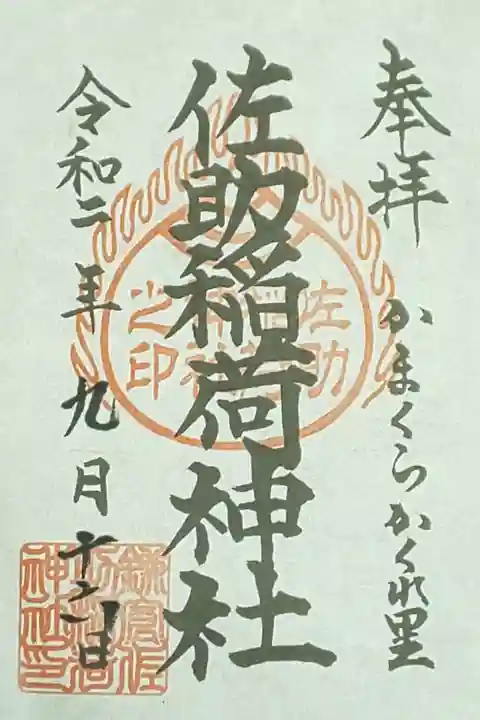 奉拝 かまくらかくれ里
佐助稲荷神社
令和二年九月十二日
佐助
稲荷
神社
之印
鎌倉佐
助稲荷
神社印